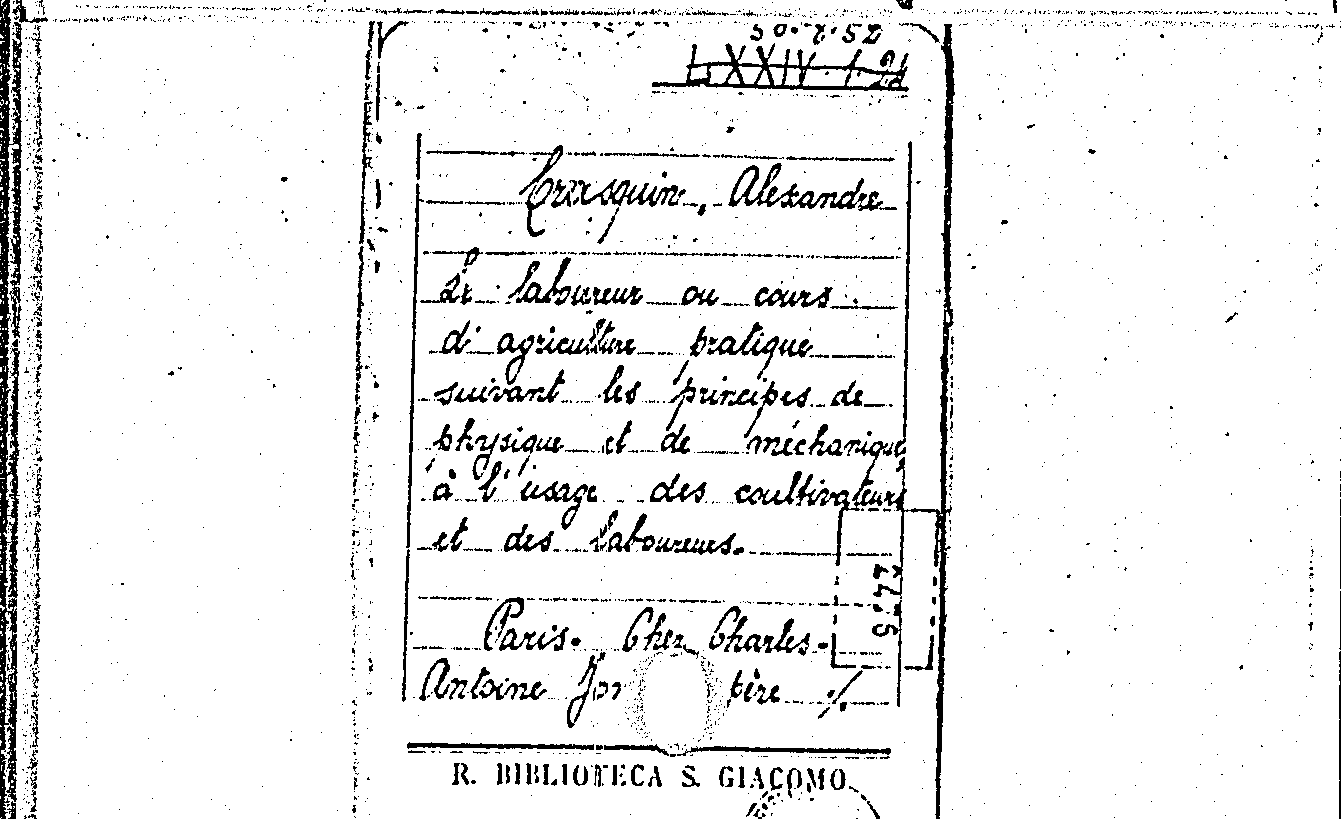 50.7.52
LXXIV.1.21
Crasquin, Alexandre
Le laboureur ou cours
d'agriculture pratique
suivant les principes de
physique et de méchanique,
à l'usage des coultivateurs
et des laboureurs.
Paris. Chez Charles-
Antoine Jom père ./.
R. BIBLIOTECA S. GIACOMO